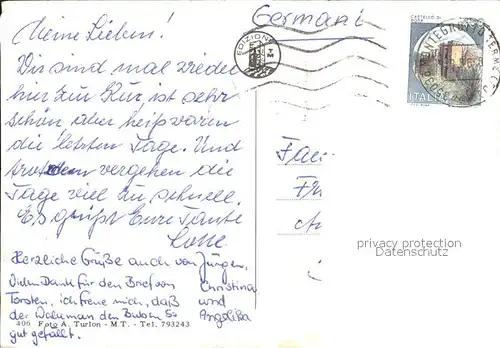 Meine Lieben!
Wir sind mal wieder
hier zur Kur, ist sehr
schön, aber heiß waren
die letzten Tage. Und
trotzdem vergehen die
Tage viel zu schnell.
Es grüßt Eure Tante
Lotte
Herzliche Grüße auch von Jürgen,
Christina
und
Angelika
Vielen Dank für den Brief von
Torsten, ich freue mich, daß
der Walkman den Buben so
gut gefällt.
406 Foto A. Turlon - M.T. - Tel. 793243
Germani
EDIZIONE
TM
CASTELLO DI
ITALIA
MONTEGROTTO TERME
Fam
Fr
privacy protection
Datenschutz